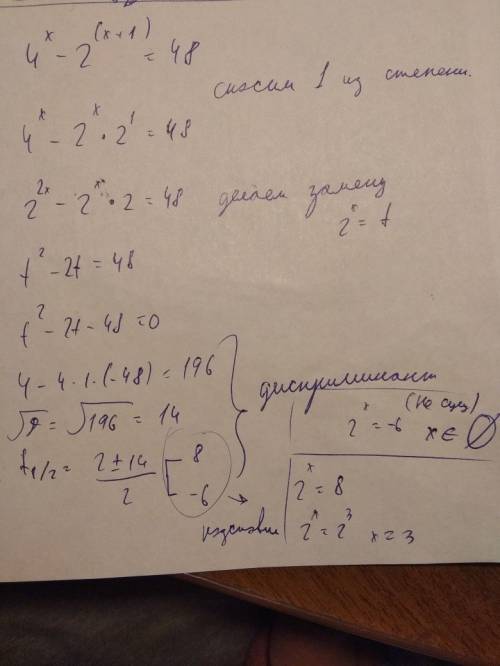 4^x - 2^(x+1) = 48
сносим 1 из степени.
4^x - 2^x · 2^1 = 48
2^2x - 2^x · 2 = 48
делаем замену
2^x = t
t^2 - 2t = 48
t^2 - 2t - 48 = 0
4 - 4 · 1 · (-48) = 196
√D = √196 = 14
t1/2 = 2 ± 14 / 2 [ 8 -6
дискриминант
2^x = -6 (не сущ) x ∈ ∅
2^x = 8
2^x = 2^3 x = 3